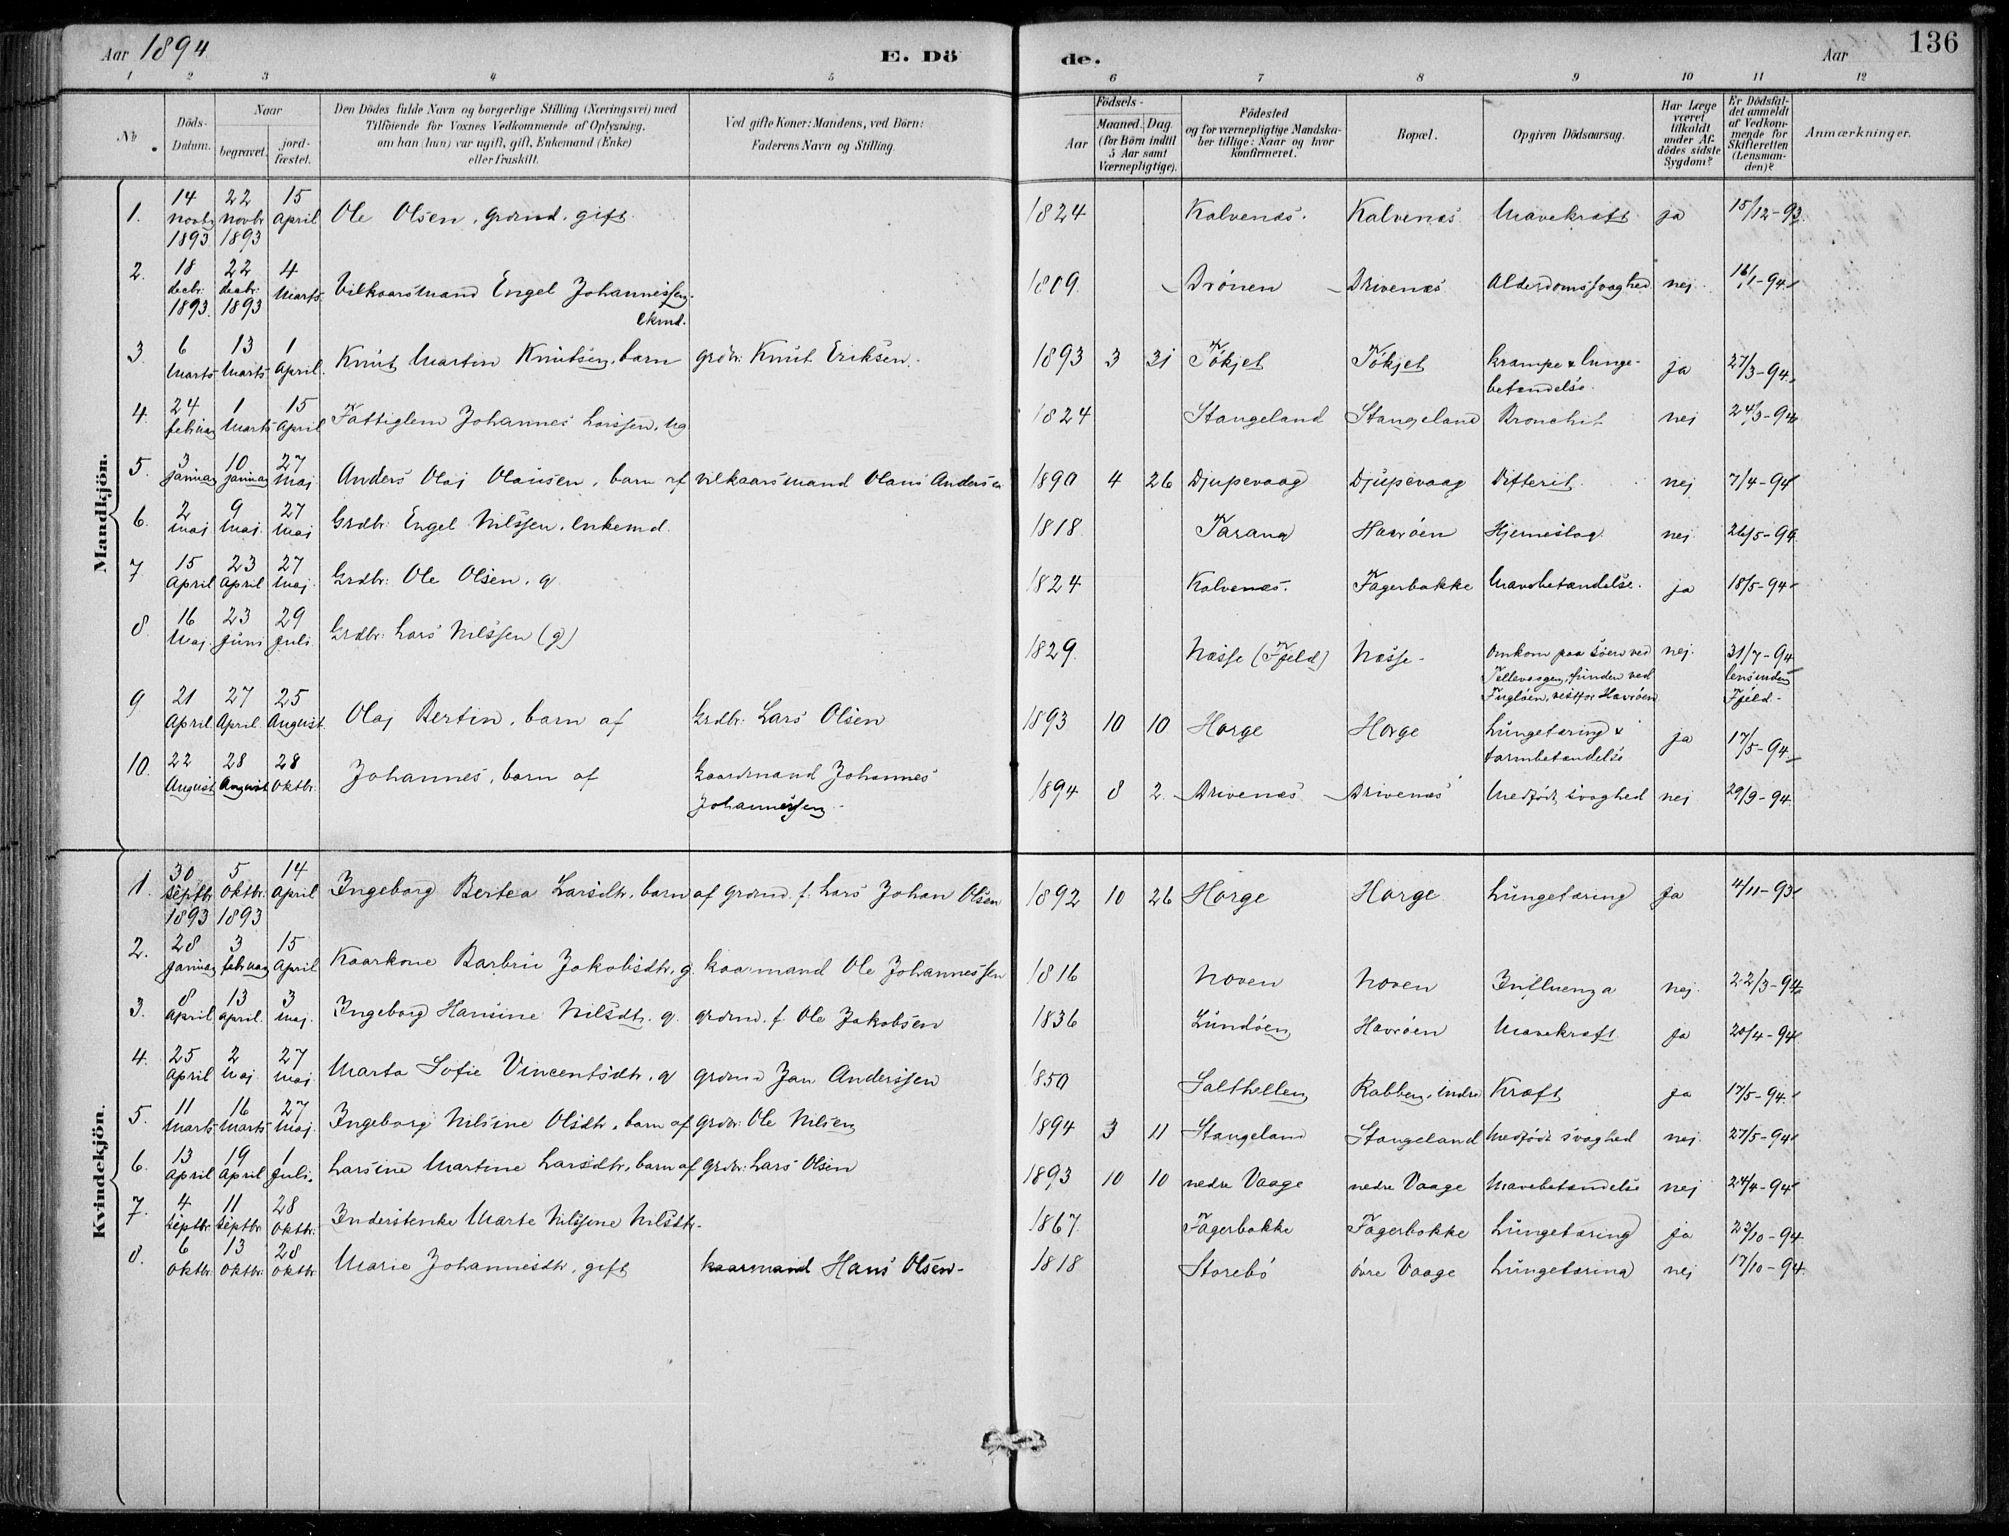 Aar 1894. E. Dö de. Aar 136
1 2 3 4 5 6 7 8 9 10 11 12
No. Döds-Datum. Naar begravet. jord-fæstet. Den Dödes fulde Navn og borgerlige Stilling (Næringsvei) med Tilföiende for Voxnes Vedkommende af Oplysning, om han (hun) var ugift, gift, Enkemand (Enke) eller fraskilt. Ved gifte Koner: Mandens, ved Börn: Faderens Navn og Stilling. Födsels- Aar Maaned. Dag. (for Börn indtil 5 Aar samt Værnepligtige). Födested og for værnepligtige Mandska-ber tillige: Naar og hvor konfirmeret. Bopæl. Opgiven Dödsaarsag. Har Læge været tilkaldt under Af-dödes sidste Sygdom? Er Dödsfal-det anmeldt af Vedkom-mende for Skifteretten (Lensman-den)? Anmærkninger.
Mandkjön.
1. 14 novbr 1893 22 novbr 1893 15 April Ole Olsen, grdmd. gift 1824 Kalvenæs. Kalvenæs Mavekræft ja 15/12-93
2. 18 decbr. 1893. 22 decbr. 1893 4 Marts Vilkaarsmand Engel Johannessen. ekmd. 1809 Drönen Drivenæs Alderdomssvaghed nej 16/1-94
3. 6 Marts 13 Marts 1 April. Knut Martin Knutsen, barn grdbr. Knut Eriksen. 1893 3 31 Tökjet Tökjet krampe & lunge-betændelse. ja 27/3-94
4. 24 februar 1 Marts 15 April Fattiglem Johannes Larssen, ug. 1824 Stangeland Stangeland Bronchit nej 24/3-94
5. 3 januar 10 januar 27 Maj Anders Olaj Olausen, barn af vilkaarsmand Olaus Andersen 1890 4 26 Djupevaag Djupevaag Difterit nej 7/4-94
6. 2 Maj 9 Maj. 27 Maj Grdbr. Engel Nilssen, Enkemd. 1818 Tarang Havröen Hjerneslag nej 26/5-94
7 15 April 23 April 27 Maj. Grdbr. Ole Olsen, g 1824 Kalvenæs. Fagerbakke Mavebetændelse. ja 18/5-94
8. 16 Maj. 23 Juni 29 Juli Grdbr. Lars Nilssen (g) 1829 Næsse (Fjeld) Næsse Omkom paa söen ved Tellevaagen, funden ved Fuglöen, vest for Havröen nej. 31/7-94 lensmden i Fjeld-
9 21 April 27 April 25 August Olaj Bertin, barn af Grdbr. Lars Olsen 1893 10 10 Horge Horge Lungetæring & tarmbetændelse ja 17/5-94
10. 22 August 28 August 28 oktbr. Johannes, barn af Gaardmand Johannes Johannessen 1894 8 2. Drivenæs Drivenæs Medfödt svaghed nej 29/9-94
Kvindekjön.
1. 30 septbr 1893 5 oktbr. 1893 14 April Ingeborg Bertea Larsdtr. barn af grdmd. f. Lars Johan Olsen 1892 10 26 Horge Horge Lungetæring Ja 4/11-93
2. 28 januar 3 februar 15 April Kaarkone Barbru Jakobsdtr, g. kaarmand Ole Johannessen 1816 Noven Noven Influenza nej. 22/3-94
3. 8 April 13 April. 3 Maj. Ingeborg Hansine Nilsdtr. g. grdmd. f. Ole Jakobsen 1836 Lundöen Havröen Mavekræft Ja 20/4-94
4. 25 April 2 Maj 27 Maj Marta Sofie Vincentsdtr. g grdmd Jan Anderssen 1850 Salthellen Rabben, indre Kræft ja 17/5-94
5. 11 Marts 16 Marts 27 Maj. Ingeborg Nilsine Olsdtr. barn af grdbr. Ole Nilsen 1894 3 11 Stangeland Stangeland Medfödt svaghed nej. 27/5-94
6. 13 April 19 April 1 Juli. Larsine Martine Larsdtr. barn af grdbr: Lars Olsen 1893 10 10 nedre Vaage nedre Vaage Mavebetændelse nej 24/4-94
7. 4 septbr. 11 septbr. 28 oktbr. Inderstenke Marte Nilssine Nilsdtr. 1867 Fagerbakke Fagerbakke Lungetæring ja 23/10-94
8. 6 oktbr. 13 oktbr. 28 oktbr Marie Johannesdtr, gift kaarmand Hans Olsen- 1818 Storebö övre Vaage Lungetæring nej 17/10-94